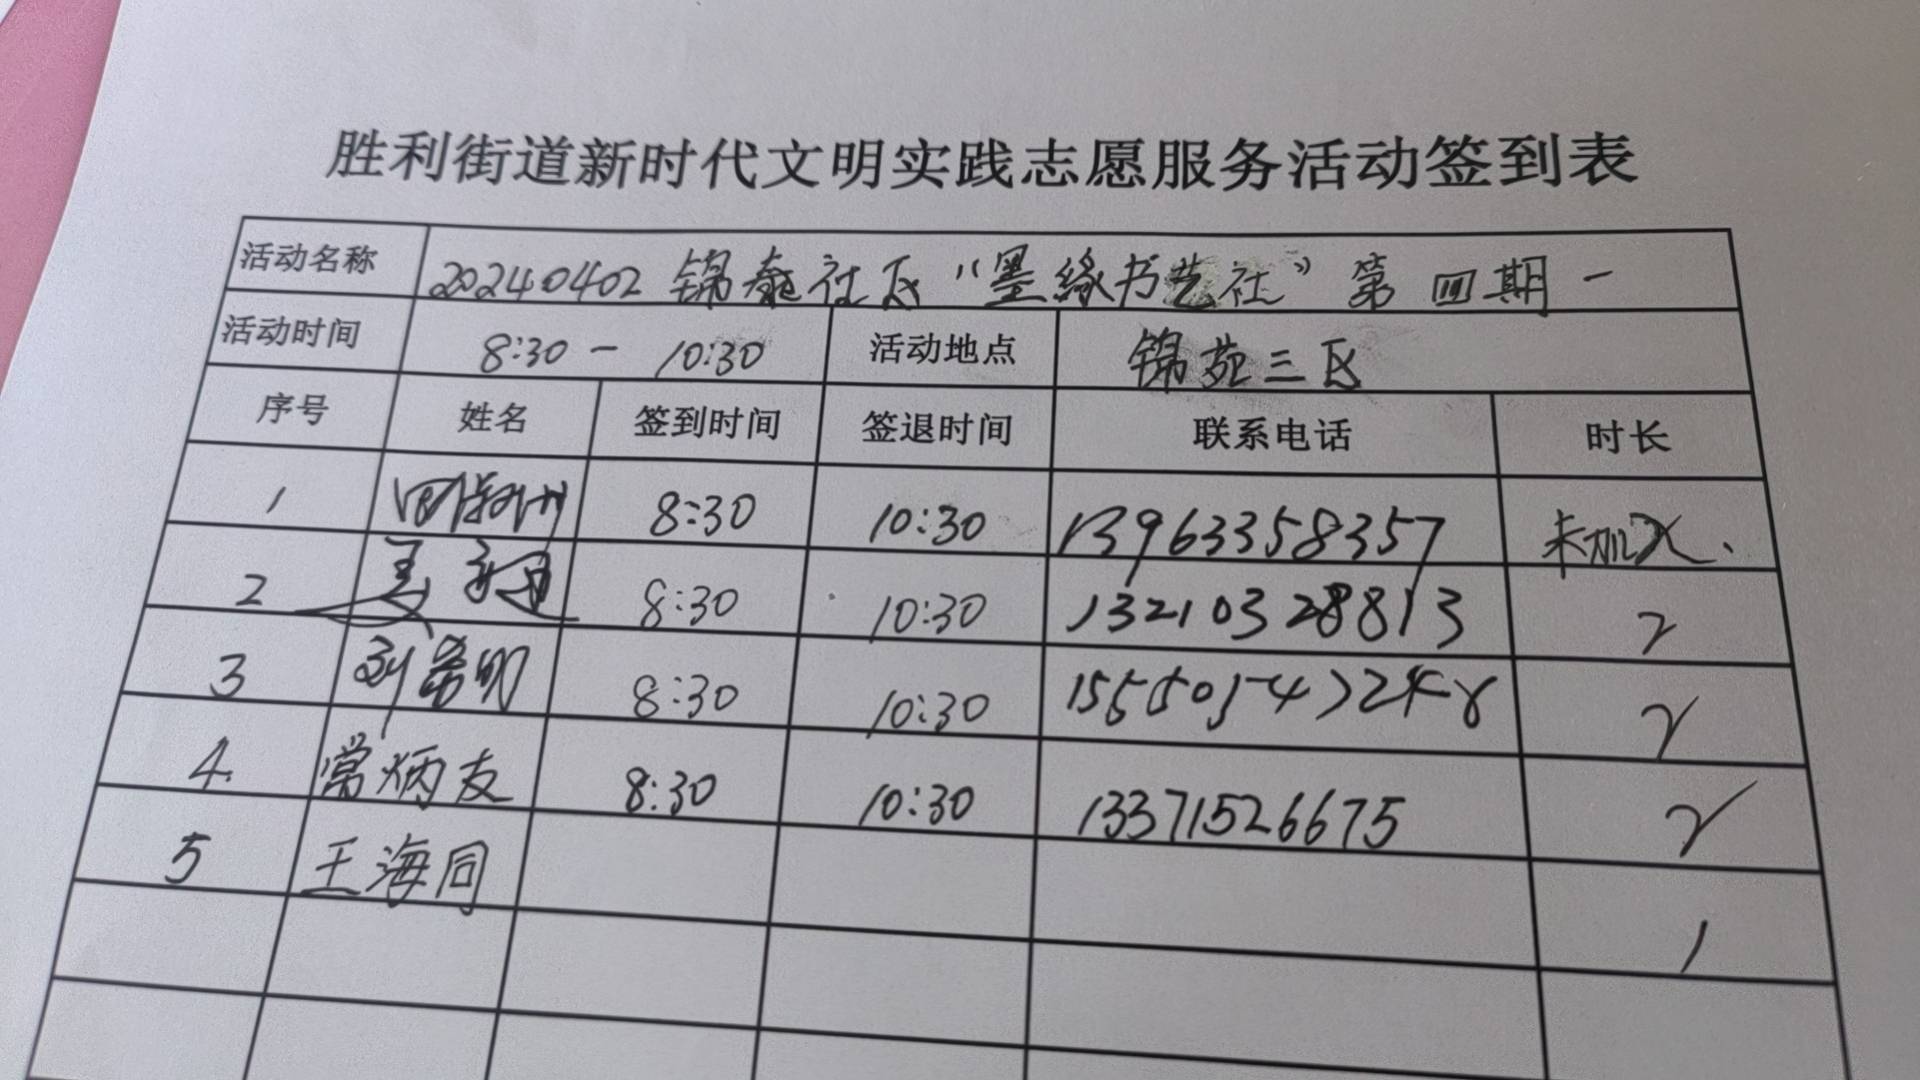 胜利街道新时代文明实践志愿服务活动签到表
活动名称 20240402 锦苑社区“墨缘书艺社”第四期一
活动时间 8:30 - 10:30 活动地点 锦苑三区
序号 姓名 签到时间 签退时间 联系电话 时长
1 8:30 10:30 13963358357 未加入.
2 8:30 10:30 13210328813 2
3 8:30 10:30 2
4. 常炳友 8:30 10:30 13371526675 2
5 王海同 1